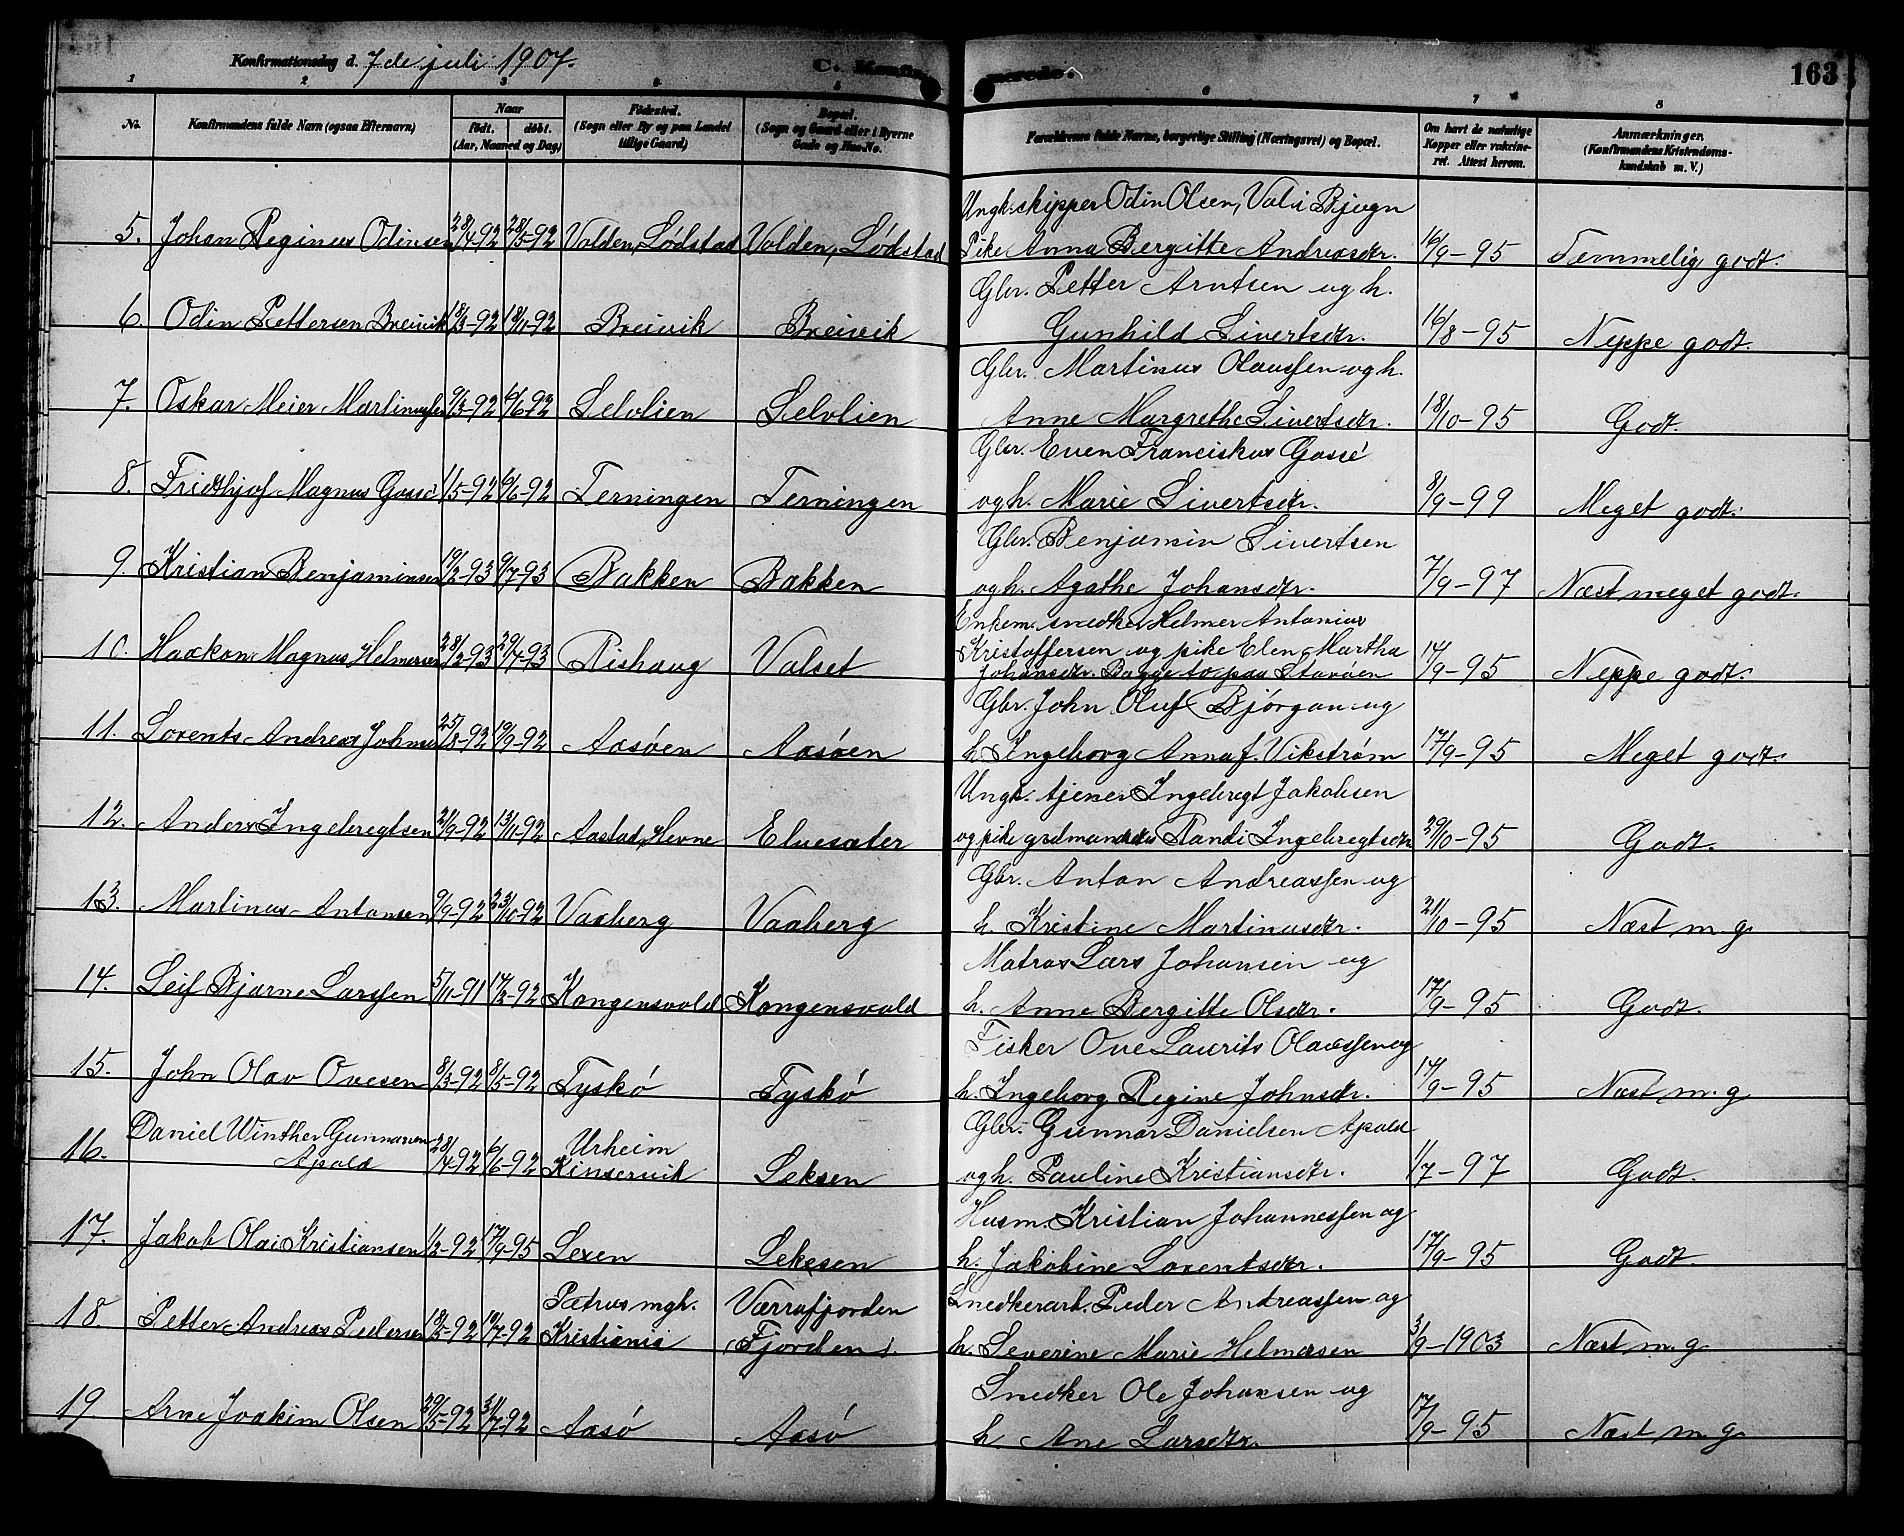 Konfirmationsdag d. 7de juli 1907.
C. Konfirmerede.
163
1 2 3 4 5 6 7 8
No.
Konfirmandens fulde Navn (ogsaa Efternavn)
Naar
født, døbt.
(Aar, Maaned og Dag)
Fødested.
(Sogn eller By og paa Landet
tillige Gaard)
Bopæl.
(Sogn og Gaard eller i Byerne
Gade og Hus-No.
Forældrenes fulde Navne, borgerlige Stilling (Næringsvei) og Bopæl.
Om havt de naturlige
Kopper eller vaccine-
ret. Attest herom.
Anmærkninger.
(Konfirmandens Kristendoms-
kundskab m. V.)
Ungk. skipper Odin Olsen, Bjugn
5. Johan Reginus Odinsen 28/4-92 28/5-92 Volden, Lødstad Volden, Lødstad Pike Anna Bergitte Andreasdtr. 16/9-95 Temmelig godt.
Gbr. Petter Arntsen og h.
6. Odin Pettersen Breivik 18/3-92 18/11-92 Breivik Breivik Gunhild Sivertsdtr. 16/8-95 Neppe godt.
Gbr. Martinus Olaussen og h.
7. Oskar Meier Martinussen 9/3-92 6/6-92 Selvlien Selvlien Anne Margrethe Sivertsdtr. 18/10-95 Godt.
Gbr. Even Franciskus Gassé
8. Fridthjof Magnus Gassé 1/5-92 6/6-92 Terningen Terningen og h. Marie Sivertsdtr. 8/9-99 Meget godt.
Gbr. Benjamin Sivertsen
9. Kristian Benjaminsen 19/2-93 9/7-93 Bakken Bakken og h. Agathe Johansdtr. 7/9-97 Næst meget godt.
Enkem. snedker Helmer Antonius
Kristoffersen og pike Elen Martha
10. Haakon Magnus Helmersen 28/2-93 29/7-93 Rishaug Valset Johansdtr. Begge to paa Storøen 17/9-95 Neppe godt.
Gbr. John Oluf Bjørgan og
11. Lorents Andreas Johnsen 25/8-92 19/9-92 Aasøen Aasøen h. Ingeborg Anna f. Vikstrøm 17/9-95 Meget godt.
Ungk. tjener Ingebregt Jakobsen
12. Anders Ingebregtsen 21/9-92 13/11-92 Aastad, Hevne Elvesæter og pike Randi Ingebregtsdtr. 29/10-95 Godt.
Gbr. Anton Andreassen og
13. Martinus Antonsen 9/9-92 23/10-92 Vaaberg Vaaberg h. Kristine Martinusdtr. 21/10-95 Næst m. g.
Matros Lars Johansen og
14. Leif Bjarne Larssen 5/11-91 17/2-92 Kongensvold Kongensvold h. Anne Bergitte Olsdtr. 17/9-95 Godt.
Fisker Ove Laurits Olaussen og
15. John Olav Ovesen 8/3-92 8/5-92 Tyskø Tyskø h. Ingeborg Regine Johnsdtr. 17/9-95 Næst m. g.
Daniel Winther Gunnarsen Urheim Gbr. Gunnar Danielsen Apold
16. Apold 28/4-92 6/6-92 Kinservik Leksen og h. Pauline Kristiansdtr. 1/7-97 Godt.
Husm. Kristian Johannessen og
17. Jakob Olai Kristiansen 1/2-92 17/9-95 Lexen Leksen h. Jakobine Lorentsdtr. 17/9-95 Godt.
Petrus mgh. Værrafjorden Snedkerarb. Peder Andreassen og
18. Petter Andreas Pedersen 18/5-92 10/7-92 Kristiania Fjorden s. h. Severine Marie Helmersen 3/9-1903 Næst m. g.
Snedker Ole Johansen og
19. Arne Joakim Olsen 29/5-92 31/7-92 Aasø Aasø h. Ane Larsdtr. 17/9-95 Næst m. g.